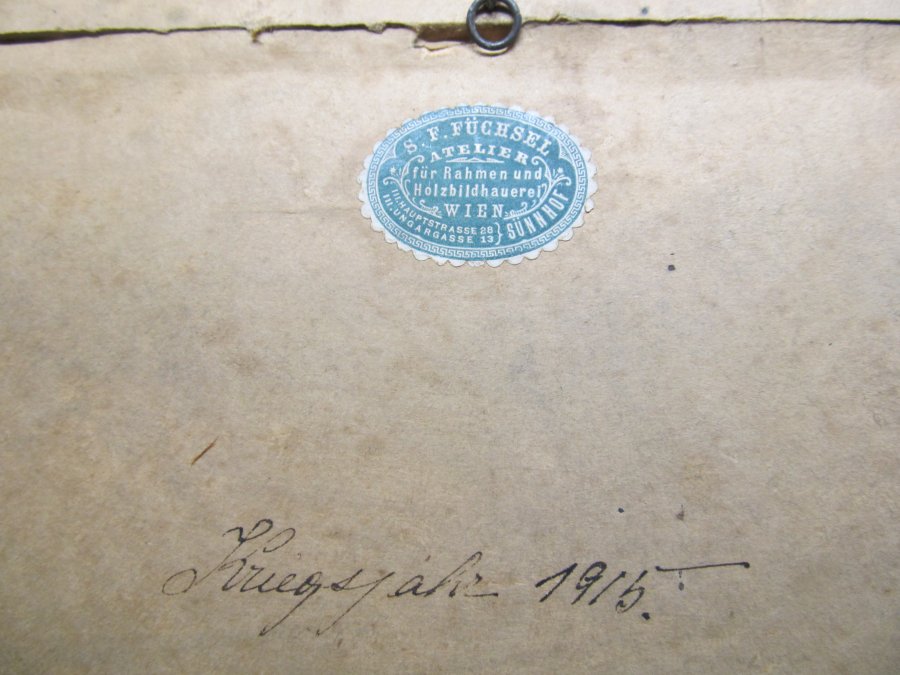 S. F. FÜCHSEL
ATELIER
für Rahmen und
Holzbildhauerei
WIEN
III. HAUPTSTRASSE 28
III. UNGARGASSE 13
SÜNNHOF
Kriegsjahr 1915.